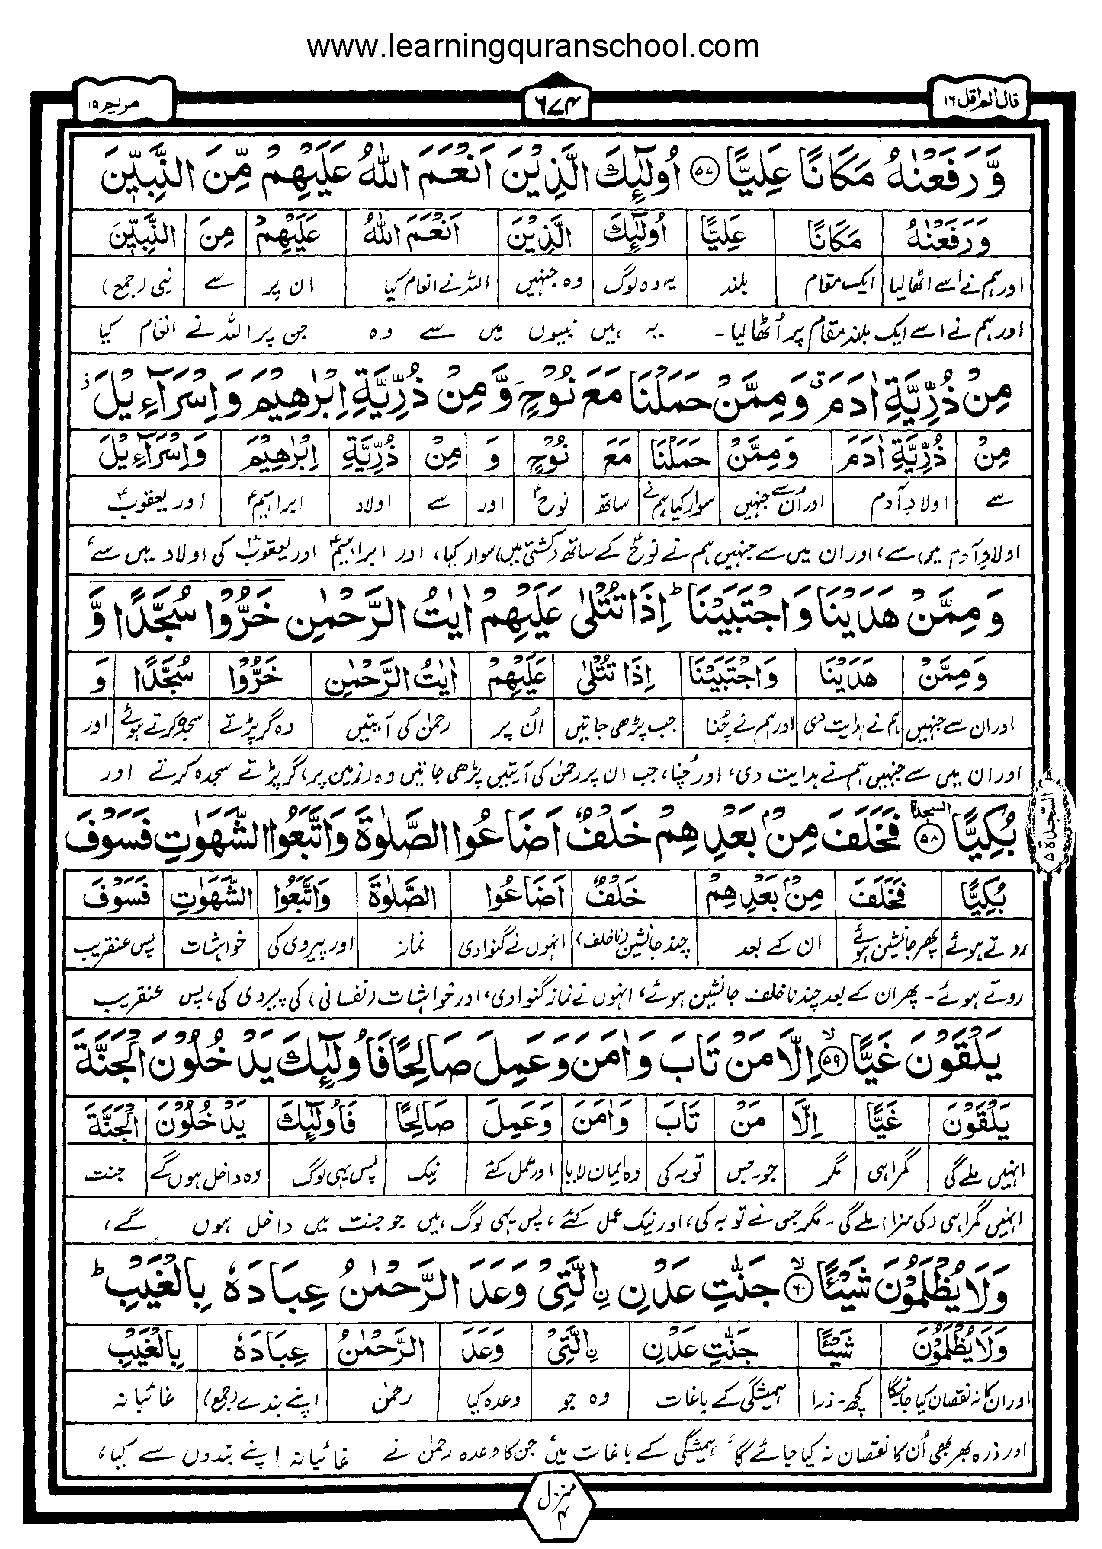 www.learningquranschool.com
قال الم اقل ١٦
٦٧٤
مریم ١٩
وَّ رَفَعْنٰهُ مَكَانًا عَلِیًّا ۝٥٧ اُولٰٓئِكَ الَّذِیْنَ اَنْعَمَ اللّٰهُ عَلَیْهِمْ مِّنَ النَّبِیّٖنَ
وَ رَفَعْنٰهُ مَكَانًا عَلِیًّا اُولٰٓئِكَ الَّذِیْنَ اَنْعَمَ اللّٰهُ عَلَیْهِمْ مِنَ النَّبِیّٖنَ
اور ہم نے اسے اٹھا لیا ایک مقام بلند یہ وہ لوگ وہ جنہیں اللہ نے انعام کیا ان پر سے نبی (جمع)
اور ہم نے اسے ایک بلند مقام پر اُٹھا لیا۔ یہ ہیں نبیوں میں سے وہ جن پر اللہ نے انعام کیا
مِنْ ذُرِّیَّةِ اٰدَمَ ۗ وَ مِمَّنْ حَمَلْنَا مَعَ نُوْحٍ وَّ مِنْ ذُرِّیَّةِ اِبْرٰهِیْمَ وَ اِسْرَآءِیْلَ ز
مِنْ ذُرِّیَّةِ اٰدَمَ وَ مِمَّنْ حَمَلْنَا مَعَ نُوْحٍ وَ مِنْ ذُرِّیَّةِ اِبْرٰهِیْمَ وَ اِسْرَآءِیْلَ
سے اولادِ آدم اور ان سے جنہیں سوار کیا ہم نے ساتھ نوحؑ اور سے اولاد ابراہیمؑ اور یعقوبؑ
اولادِ آدم میں سے، اور ان میں سے جنہیں ہم نے نوحؑ کے ساتھ (کشتی میں) سوار کیا، اور ابراہیمؑ اور یعقوبؑ کی اولاد میں سے،
وَ مِمَّنْ هَدَیْنَا وَ اجْتَبَیْنَا ؕ اِذَا تُتْلٰی عَلَیْهِمْ اٰیٰتُ الرَّحْمٰنِ خَرُّوْا سُجَّدًا وَّ
وَ مِمَّنْ هَدَیْنَا وَ اجْتَبَیْنَا اِذَا تُتْلٰی عَلَیْهِمْ اٰیٰتُ الرَّحْمٰنِ خَرُّوْا سُجَّدًا وَ
اور ان سے جنہیں ہم نے ہدایت دی اور ہم نے چُنا جب پڑھی جاتیں اُن پر رحمٰن کی آیتیں وہ گر پڑتے سجدہ کرتے ہوئے اور
اور ان میں سے جنہیں ہم نے ہدایت دی، اور چُنا، جب ان پر رحمٰن کی آیتیں پڑھی جاتیں وہ (زمین پر) گر پڑتے سجدہ کرتے اور
السجدة ٥
بُكِیًّا ۝٥٨ السجدة فَخَلَفَ مِنْۢ بَعْدِهِمْ خَلْفٌ اَضَاعُوا الصَّلٰوةَ وَ اتَّبَعُوا الشَّهَوٰتِ فَسَوْفَ
بُكِیًّا فَخَلَفَ مِنْۢ بَعْدِهِمْ خَلْفٌ اَضَاعُوا الصَّلٰوةَ وَ اتَّبَعُوا الشَّهَوٰتِ فَسَوْفَ
روتے ہوئے پھر جانشین ہوئے ان کے بعد چند جانشین (ناخلف) انہوں نے گنوا دی نماز اور پیروی کی خواہشات پس عنقریب
روتے ہوئے۔ پھر ان کے بعد چند ناخلف جانشین ہوئے، انہوں نے نماز گنوا دی، اور خواہشات (نفسانی) کی پیروی کی، پس عنقریب
یَلْقَوْنَ غَیًّا ۝٥٩ۙ اِلَّا مَنْ تَابَ وَ اٰمَنَ وَ عَمِلَ صَالِحًا فَاُولٰٓئِكَ یَدْخُلُوْنَ الْجَنَّةَ
یَلْقَوْنَ غَیًّا اِلَّا مَنْ تَابَ وَ اٰمَنَ وَ عَمِلَ صَالِحًا فَاُولٰٓئِكَ یَدْخُلُوْنَ الْجَنَّةَ
انہیں ملے گی گمراہی مگر جو۔جس توبہ کی وہ ایمان لایا اور عمل کئے نیک پس یہی لوگ وہ داخل ہوں گے جنت
انہیں گمراہی (کی سزا) ملے گی۔ مگر جس نے توبہ کی، اور نیک عمل کئے، پس یہی لوگ ہیں جو جنت میں داخل ہوں گے،
وَ لَا یُظْلَمُوْنَ شَیْـًٔا ۝٦٠ۙ جَنّٰتِ عَدْنِ ِۨالَّتِیْ وَعَدَ الرَّحْمٰنُ عِبَادَهٗ بِالْغَیْبِ ؕ
وَ لَا یُظْلَمُوْنَ شَیْـًٔا جَنّٰتِ عَدْنِ ِۨالَّتِیْ وَعَدَ الرَّحْمٰنُ عِبَادَهٗ بِالْغَیْبِ
اور ان کا نہ نقصان کیا جائیگا کچھ۔ذرا ہمیشگی کے باغات وہ جو وعدہ کیا رحمٰن اپنے بندے (جمع) غائبانہ
اور ذرہ بھر بھی اُن کا نقصان نہ کیا جائے گا، ہمیشگی کے باغات میں، جن کا وعدہ رحمٰن نے غائبانہ اپنے بندوں سے کیا،
منزل ٤